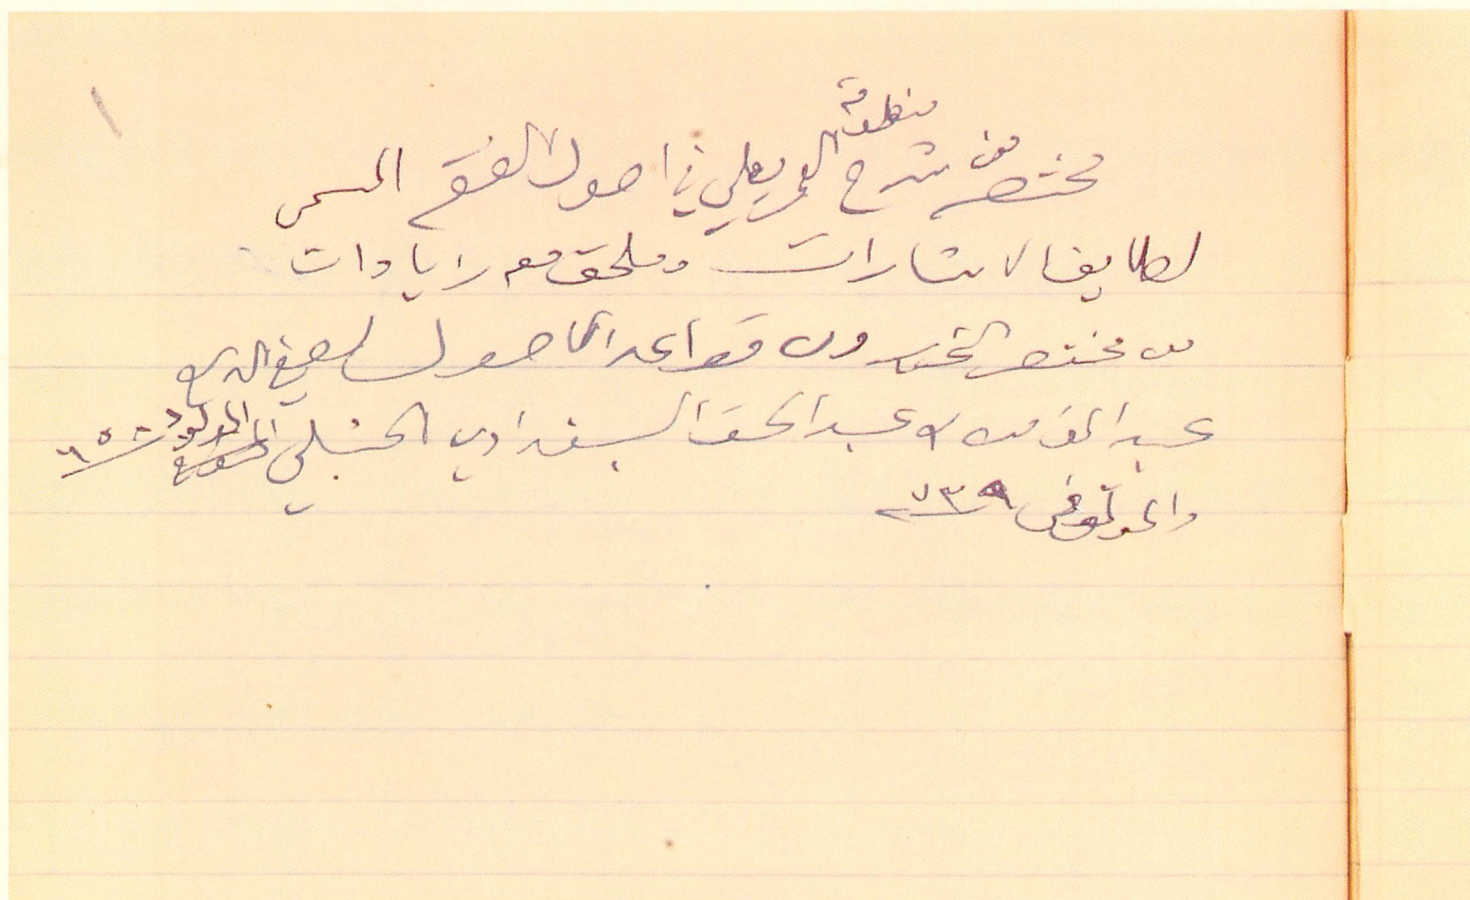 ١
مختصر من شرح منظومة العمريطي في اصول الفقه المسمى
لطايف الاشارات وملحق معه زيادات
من مختصر التحرير ومن قواعد الاصول لصفي الدين
عبد المؤمن بن عبد الحق البغدادي الحنبلي المولود ٦٥٨
والمتوفى ٧٣٩